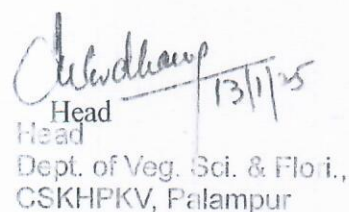 13/1/25
Head
Head
Dept. of Veg. Sci. & Flori.,
CSKHPKV, Palampur